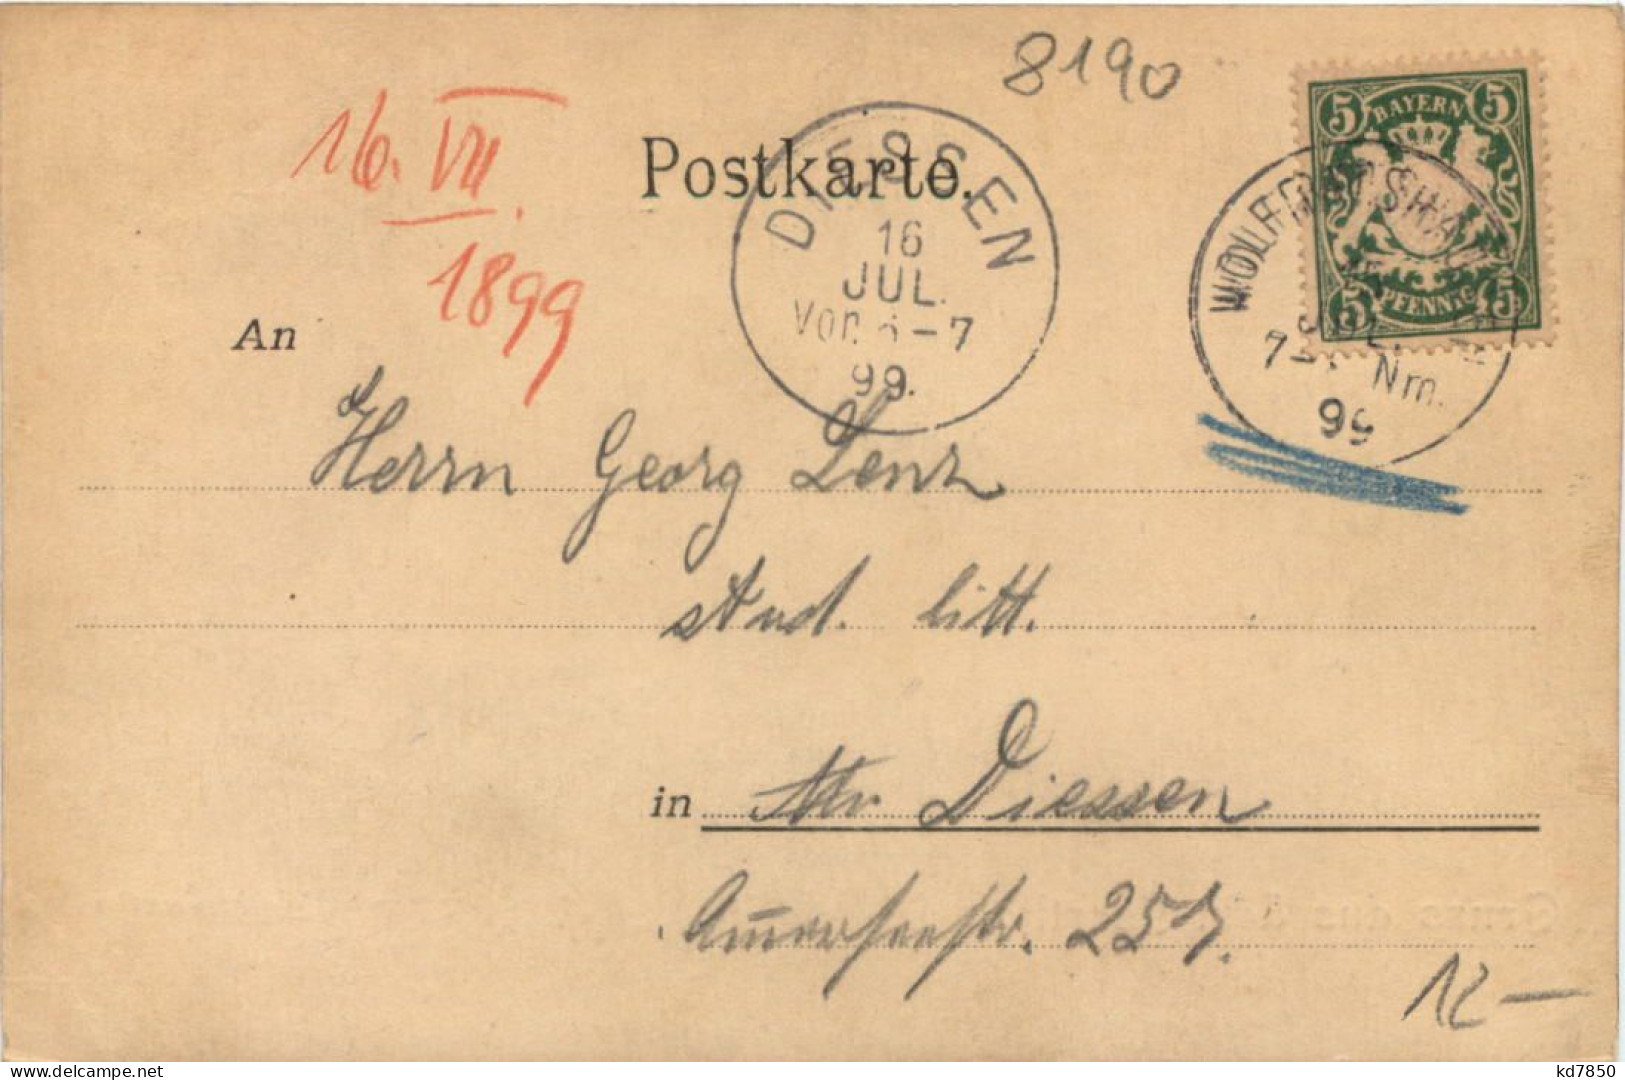 8190
16. VII.
1899
Postkarte.
DIESSEN
16
JUL.
VOR. 6-7
99.
5 BAYERN 5
5 PFENNIG 5
WOLFRATSHAUSEN
JUL.
7- Nm.
99
An
Herrn Georg Lenz
stud. litt.
in Diessen
Ammerseestr. 257.
12-
delcampe.net
kd7850